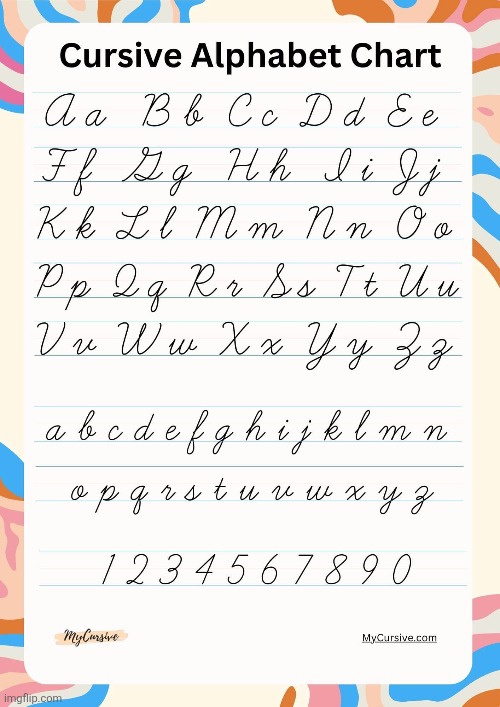 Cursive Alphabet Chart
A a B b C c D d E e
F f G g H h I i J j
K k L l M m N n O o
P p Q q R r S s T t U u
V v W w X x Y y Z z
a b c d e f g h i j k l m n
o p q r s t u v w x y z
1 2 3 4 5 6 7 8 9 0
MyCursive MyCursive.com
imgflip.com